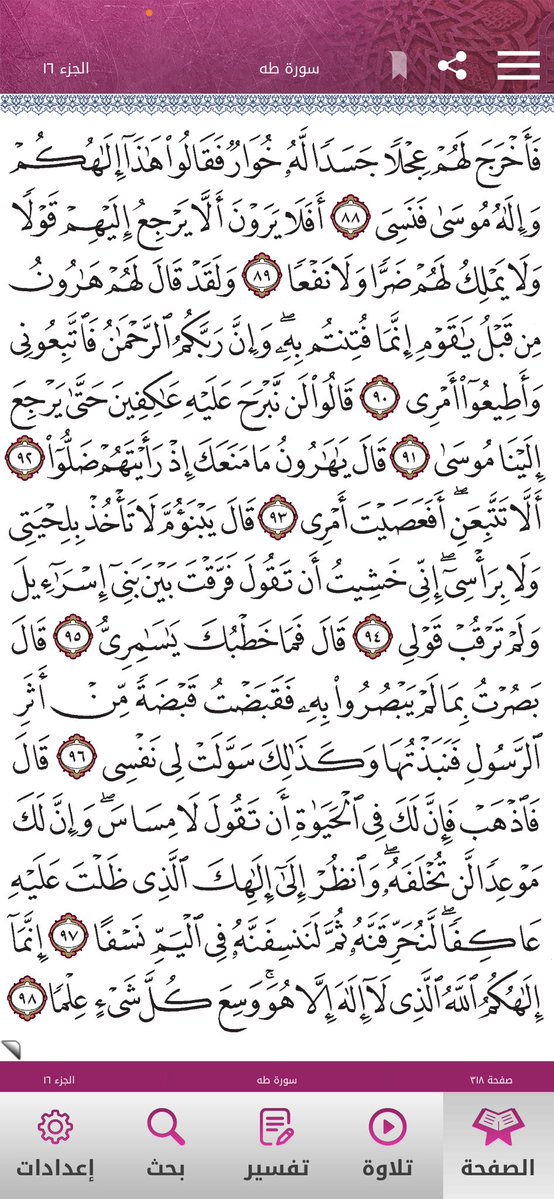 الجزء ١٦
سورة طه
فَأَخْرَجَ لَهُمْ عِجْلًا جَسَدًا لَّهُۥ خُوَارٌ فَقَالُوا۟ هَـٰذَآ إِلَـٰهُكُمْ
وَإِلَـٰهُ مُوسَىٰ فَنَسِىَ ٨٨ أَفَلَا يَرَوْنَ أَلَّا يَرْجِعُ إِلَيْهِمْ قَوْلًا
وَلَا يَمْلِكُ لَهُمْ ضَرًّا وَلَا نَفْعًا ٨٩ وَلَقَدْ قَالَ لَهُمْ هَـٰرُونُ
مِن قَبْلُ يَـٰقَوْمِ إِنَّمَا فُتِنتُم بِهِۦ ۖ وَإِنَّ رَبَّكُمُ ٱلرَّحْمَـٰنُ فَٱتَّبِعُونِى
وَأَطِيعُوٓا۟ أَمْرِى ٩٠ قَالُوا۟ لَن نَّبْرَحَ عَلَيْهِ عَـٰكِفِينَ حَتَّىٰ يَرْجِعَ
إِلَيْنَا مُوسَىٰ ٩١ قَالَ يَـٰهَـٰرُونُ مَا مَنَعَكَ إِذْ رَأَيْتَهُمْ ضَلُّوٓا۟ ٩٢
أَلَّا تَتَّبِعَنِ ۖ أَفَعَصَيْتَ أَمْرِى ٩٣ قَالَ يَبْنَؤُمَّ لَا تَأْخُذْ بِلِحْيَتِى
وَلَا بِرَأْسِىٓ ۖ إِنِّى خَشِيتُ أَن تَقُولَ فَرَّقْتَ بَيْنَ بَنِىٓ إِسْرَٰٓءِيلَ
وَلَمْ تَرْقُبْ قَوْلِى ٩٤ قَالَ فَمَا خَطْبُكَ يَـٰسَـٰمِرِىُّ ٩٥ قَالَ
بَصُرْتُ بِمَا لَمْ يَبْصُرُوا۟ بِهِۦ فَقَبَضْتُ قَبْضَةً مِّنْ أَثَرِ
ٱلرَّسُولِ فَنَبَذْتُهَا وَكَذَٰلِكَ سَوَّلَتْ لِى نَفْسِى ٩٦ قَالَ
فَٱذْهَبْ فَإِنَّ لَكَ فِى ٱلْحَيَوٰةِ أَن تَقُولَ لَا مِسَاسَ ۖ وَإِنَّ لَكَ
مَوْعِدًا لَّن تُخْلَفَهُۥ ۖ وَٱنظُرْ إِلَىٰٓ إِلَـٰهِكَ ٱلَّذِى ظَلْتَ عَلَيْهِ
عَاكِفًا ۖ لَّنُحَرِّقَنَّهُۥ ثُمَّ لَنَنسِفَنَّهُۥ فِى ٱلْيَمِّ نَسْفًا ٩٧ إِنَّمَآ
إِلَـٰهُكُمُ ٱللَّهُ ٱلَّذِى لَآ إِلَـٰهَ إِلَّا هُوَ ۚ وَسِعَ كُلَّ شَىْءٍ عِلْمًا ٩٨
صفحة ٣١٨
سورة طه
الجزء ١٦
الصفحة
تلاوة
تفسير
بحث
إعدادات